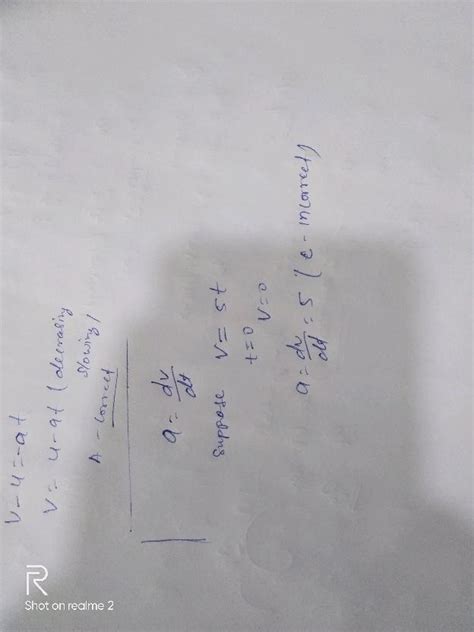 V - u = -at
V = u - at (decreasing
slowing)
A - correct
a = dv/dt
suppose V = 5t
t=0 V=0
a = dv/dt = 5 (c - incorrect)
R
Shot on realme 2